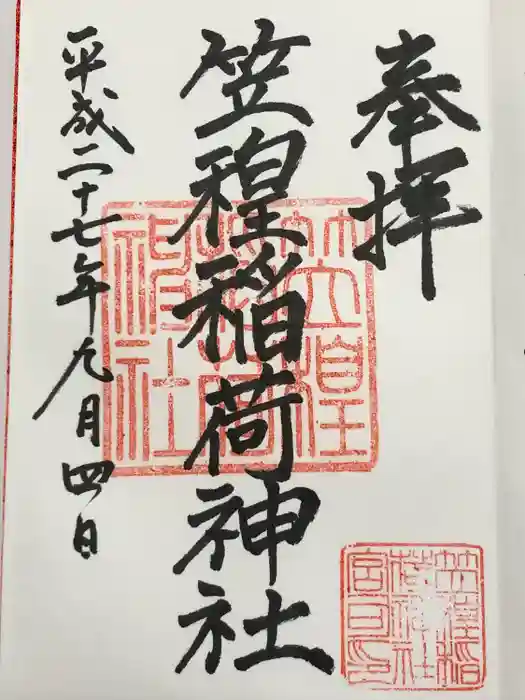 奉拝
笠䅣稲荷神社
平成二十七年九月四日